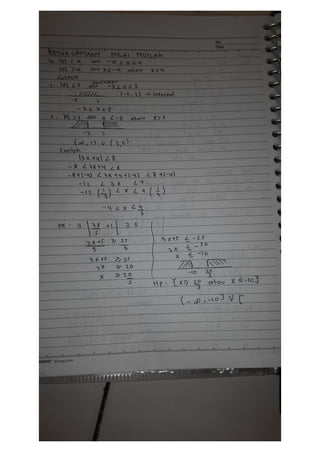 No
Date
KETAKSAMAAN NILAI MUTLAK
|x| < a ⇔ -a < x < a
|x| > a ⇔ x < -a atau x > a
Contoh
1. |x| < 3 ⇔ -3 < x < 3
(-3, 3) → interval
-3 3
-3 < x < 3
2. |x| > 3 ⇔ x < -3 atau x > 3
-3 3
Contoh
|3x + 4| < 8
-8 < 3x + 4 < 8
-8 + (-4) < 3x + 4 + (-4) < 8 + (-4)
-12 < 3x < 4
-12 (1/3) < x < 4 (1/3)
-4 < x < 4/3
ex: 1) |3x/5 + 1| ≥ 5
3x+5/5 ≥ 25/5
3x+5 ≥ 25
3x ≥ 20
x ≥ 20/3
3x+5 ≤ -25
3x ≤ -30
x ≤ -10
-10 20/3
Hp: [x ≥ 20/3 atau x ≤ -10]
(-∞, -10) V [